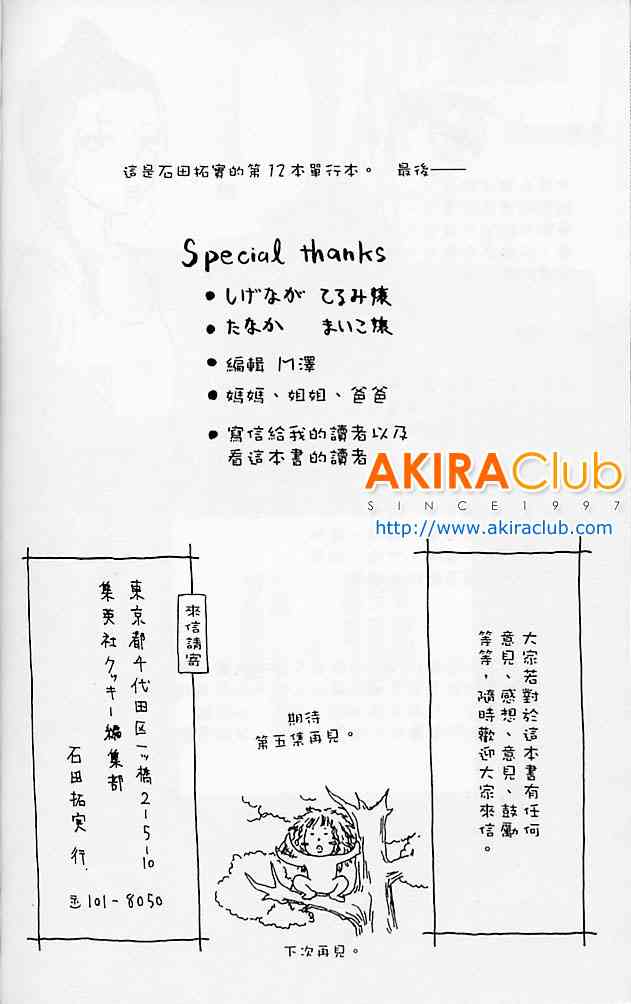 這是石田拓實的第12本單行本。 最後——
Special thanks
• しげなが てるみ嬢
• たなか まいこ嬢
• 編輯 M澤
• 媽媽、姐姐、爸爸
• 寫信給我的讀者以及
看這本書的讀者
AKIRAClub
SINCE1997
http://www.akiraclub.com
大家若對於這本書有任何
意見、感想、意見、鼓勵
等等，隨時歡迎大家來信。
來信請寄
東京都千代田区一ッ橋2-5-10
集英社クッキー編集部
石田拓実 行
〒101-8050
期待
第五集再見。
下次再見。